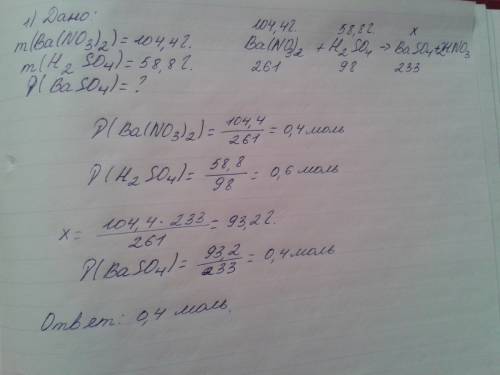 1) Дано:
m(Ba(NO3)2) = 104,4г.
m(H2SO4) = 58,8г.
ν(BaSO4) = ?
104,4г. 58,8г. x
Ba(NO3)2 + H2SO4 → BaSO4+2HNO3
261 98 233
ν(Ba(NO3)2) = 104,4/261 = 0,4 моль
ν(H2SO4) = 58,8/98 = 0,6 моль
x = 104,4·233/261 = 93,2г.
ν(BaSO4) = 93,2/233 = 0,4 моль
Ответ: 0,4 моль.